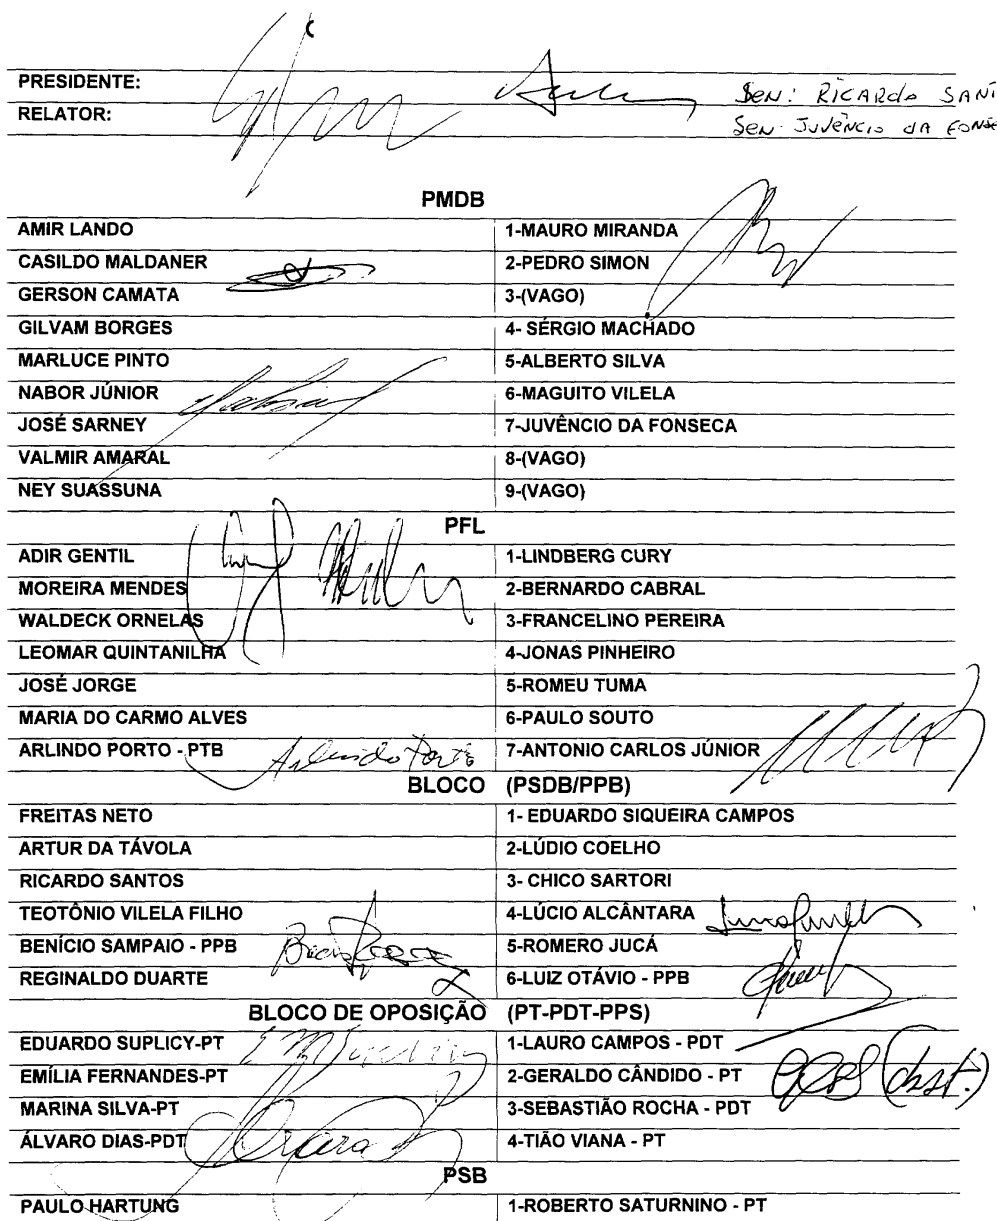 PRESIDENTE:
SEN: RICARdo SANT
RELATOR:
SEN: JUVÊNCIO dA FONSE
PMDB
AMIR LANDO 1-MAURO MIRANDA
CASILDO MALDANER 2-PEDRO SIMON
GERSON CAMATA 3-(VAGO)
GILVAM BORGES 4- SÉRGIO MACHADO
MARLUCE PINTO 5-ALBERTO SILVA
NABOR JÚNIOR 6-MAGUITO VILELA
JOSÉ SARNEY 7-JUVÊNCIO DA FONSECA
VALMIR AMARAL 8-(VAGO)
NEY SUASSUNA 9-(VAGO)
PFL
ADIR GENTIL 1-LINDBERG CURY
MOREIRA MENDES 2-BERNARDO CABRAL
WALDECK ORNELAS 3-FRANCELINO PEREIRA
LEOMAR QUINTANILHA 4-JONAS PINHEIRO
JOSÉ JORGE 5-ROMEU TUMA
MARIA DO CARMO ALVES 6-PAULO SOUTO
ARLINDO PORTO - PTB Arlindo Porto 7-ANTONIO CARLOS JÚNIOR
BLOCO (PSDB/PPB)
FREITAS NETO 1- EDUARDO SIQUEIRA CAMPOS
ARTUR DA TÁVOLA 2-LÚDIO COELHO
RICARDO SANTOS 3- CHICO SARTORI
TEOTÔNIO VILELA FILHO 4-LÚCIO ALCÂNTARA
BENÍCIO SAMPAIO - PPB 5-ROMERO JUCÁ
REGINALDO DUARTE 6-LUIZ OTÁVIO - PPB
BLOCO DE OPOSIÇÃO (PT-PDT-PPS)
EDUARDO SUPLICY-PT 1-LAURO CAMPOS - PDT
EMÍLIA FERNANDES-PT 2-GERALDO CÂNDIDO - PT
MARINA SILVA-PT 3-SEBASTIÃO ROCHA - PDT
ÁLVARO DIAS-PDT 4-TIÃO VIANA - PT
PSB
PAULO HARTUNG 1-ROBERTO SATURNINO - PT